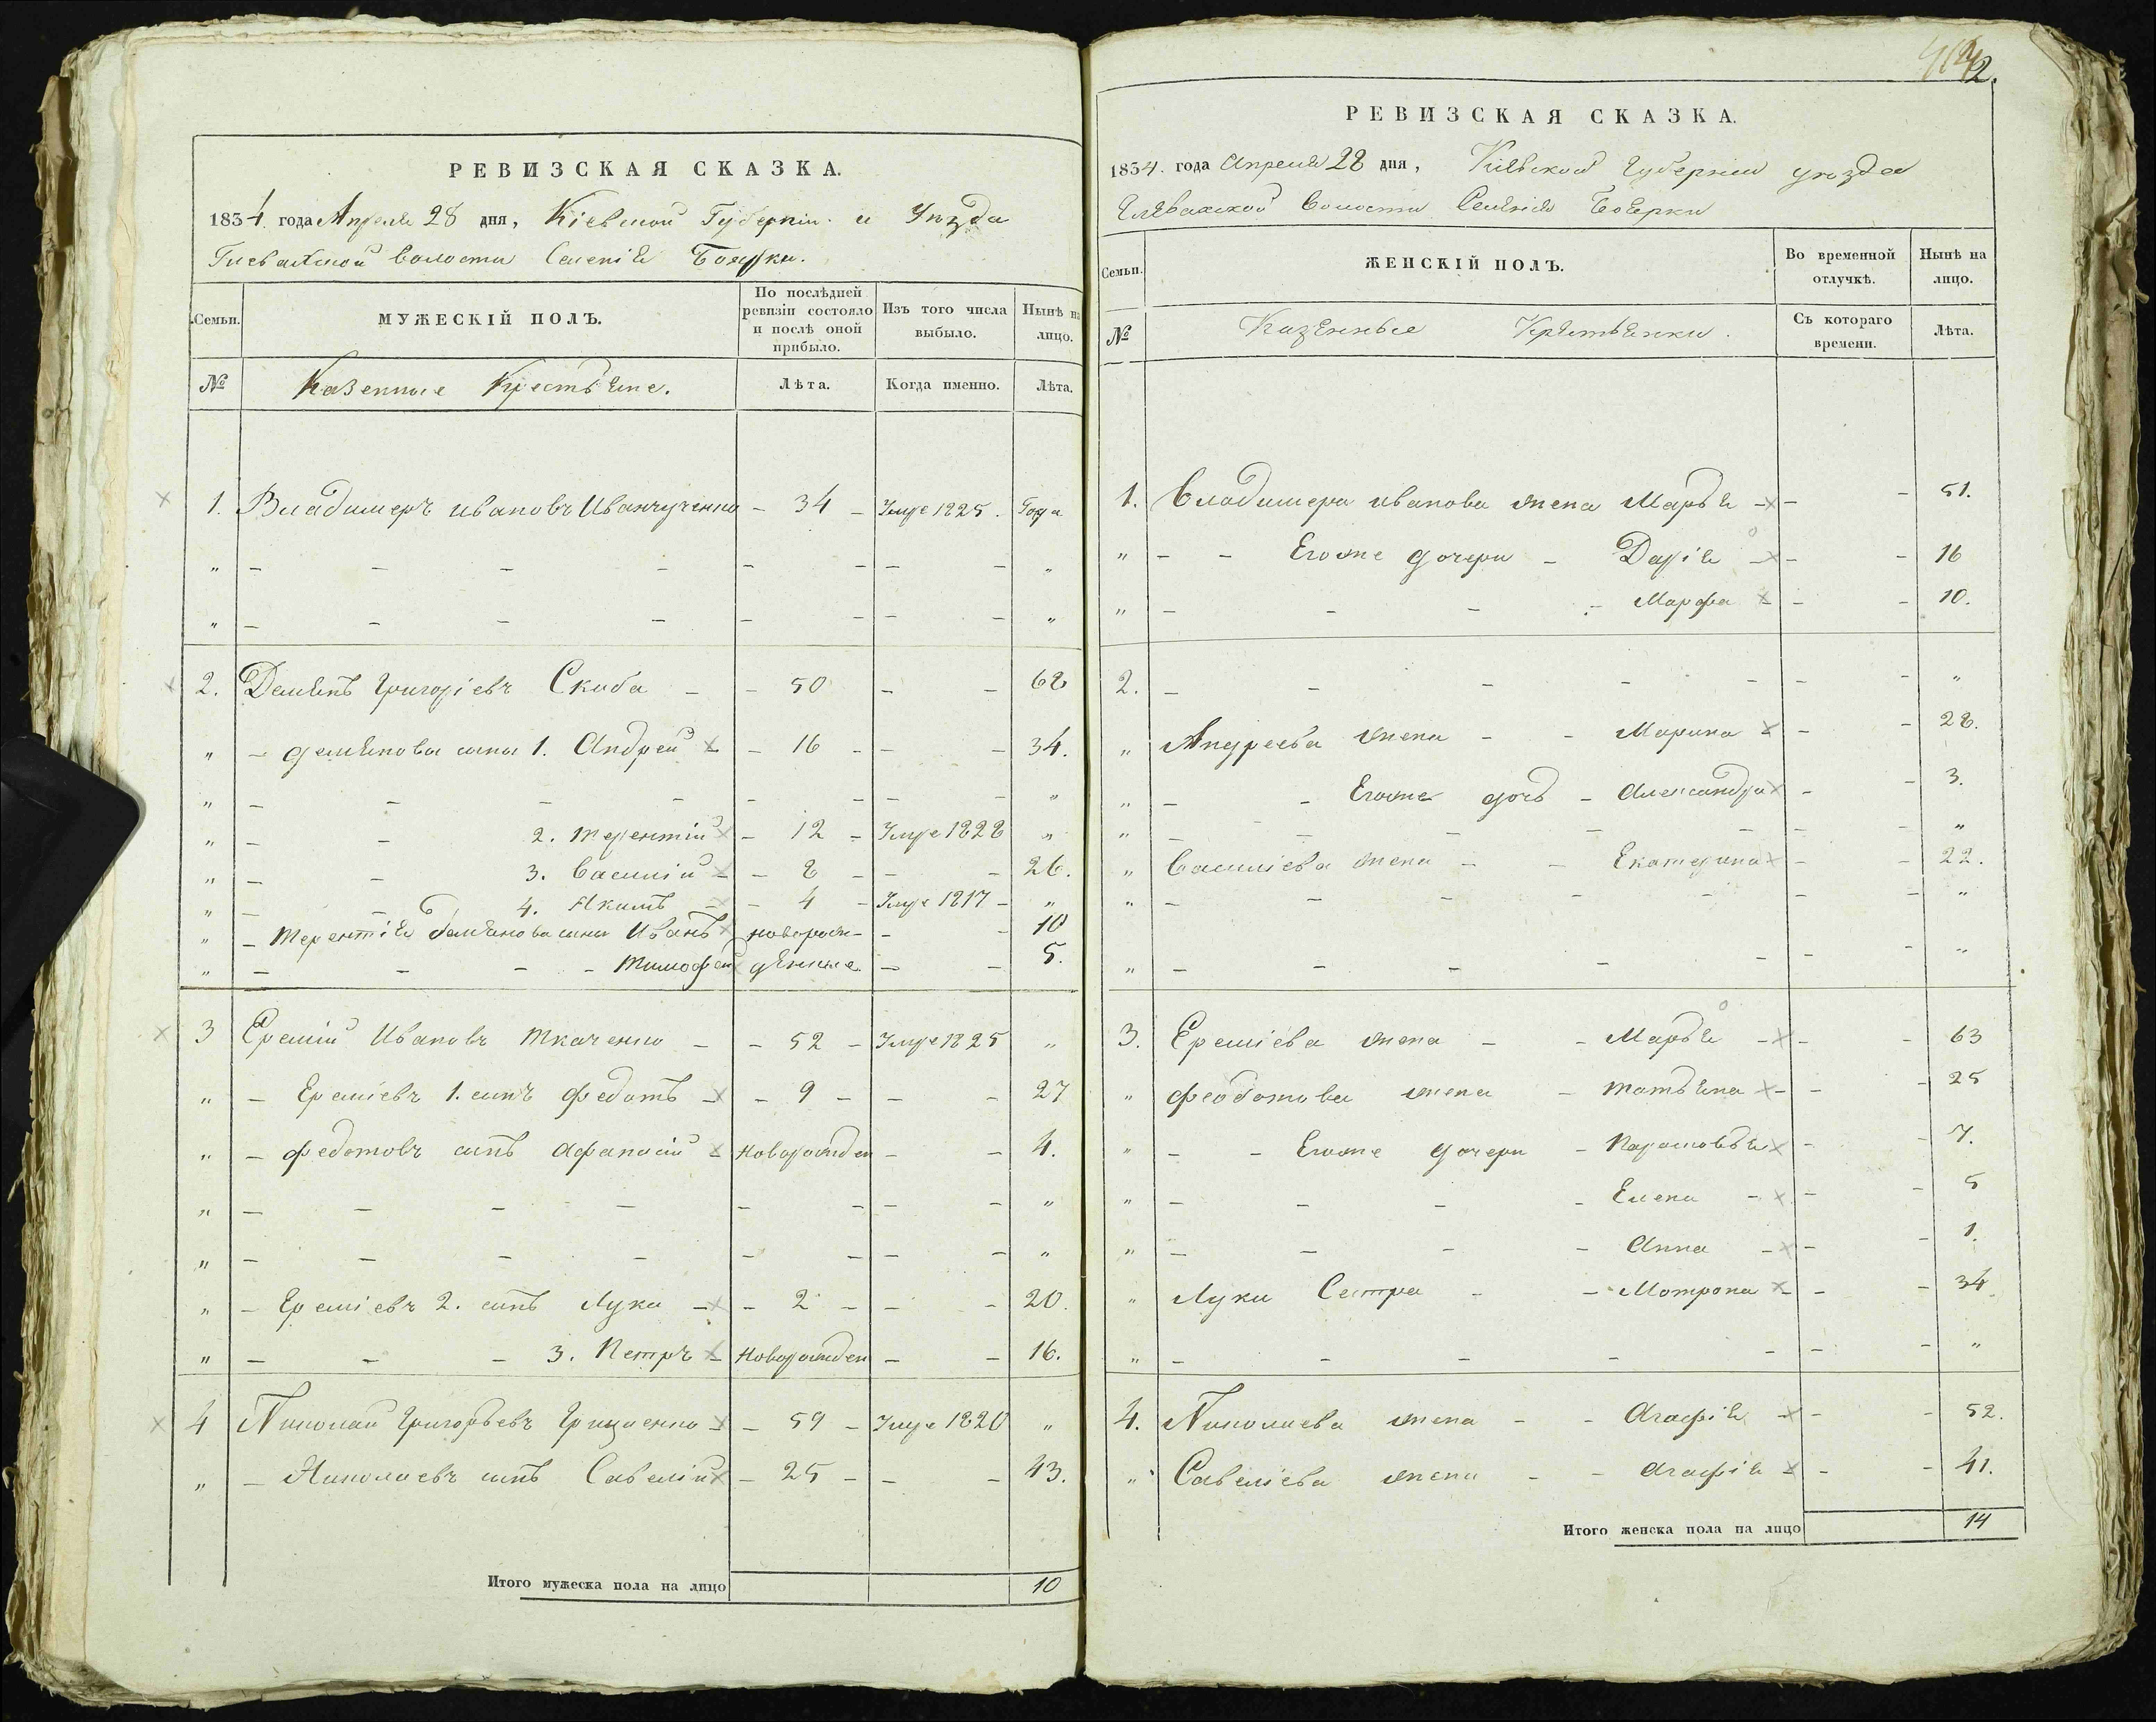 РЕВИЗСКАЯ СКАЗКА.
1834 года Апреля 28 дня, Кіевской Губерніи и Уезда
Глеваской Волости Селенія Боярки.
Семьи. МУЖЕСКІЙ ПОЛЪ. По послѣдней ревизіи состояло и послѣ оной прибыло. Изъ того числа выбыло. Нынѣ на лицо.
№ Казенные Крестьяне. Лѣта. Когда именно. Лѣта.
1. Владимеръ Ивановъ Иванчученко - 34 - Умре 1825. Года
" - - - - - - - - "
" - - - - - - - - "
2. Демьянъ Григоріевъ Скиба - - 50 - - 68
" - демьянова сыны 1. Андрей - - 16 - - - 34.
" - - - - - - - - "
" - - 2. терентій - 12 - Умре 1828 "
" - - 3. Василій - - 8 - - - 26.
" - - 4. Якимъ - - 4 - Умре 1817 - "
" - терентія демьянова сыны Иванъ новорож- - - 10
" - - - - тимофей денные. - - 5.
3 Еремій Ивановъ ткаченко - - 52 - Умре 1825 "
" - Ереміевъ 1. сынъ федотъ - - 9 - - - 27
" - федотовъ сынъ Афанасій - новорожден - - 4.
" - - - - - - - - "
" - - - - - - - - "
" - Ереміевъ 2. сынъ Лука - - 2 - - - 20.
" - - - 3. Петръ - новорожден - - 16.
4 Николай Григорьевъ Грищенко - - 59 - Умре 1820 "
" - Николаевъ сынъ Савелій - 25 - - - 43.
Итого мужеска пола на лицо 10
2.
РЕВИЗСКАЯ СКАЗКА.
1834. года Апреля 28 дня, Кіевской Губерніи уезда
Глевахской Волости Селенія Боярки
Семьи. ЖЕНСКІЙ ПОЛЪ. Во временной отлучкѣ. Нынѣ на лицо.
№ Казенные Крестьянки. Съ котораго времени. Лѣта.
1. Владимера иванова жена Марья - - - 51.
" - - Егоже дочери - Дарія - - - 16
" - - - - Марфа - - - 10.
2. - - - - - - - "
" Андреева жена - - Марина - - - 28.
" - - Егоже дочь - Александра - - 3.
" - - - - - - - "
" Василіева жена - - Екатерина - - 22.
" - - - - - - - "
" - - - - - - - "
3. Ереміева жена - - Марья - - - 63
" феодотова жена - татьяна - - - 25
" - - Егоже дочери - Парасковья - - 7.
" - - - - Елена - - - 5
" - - - - Анна - - - 1.
" Луки Сестра - - Мотрона - - - 34.
" - - - - - - - "
4. Николаева жена - - Агафія - - - 52.
" Савеліева жена - - Агафія - - - 41.
Итого женска пола на лицо 14